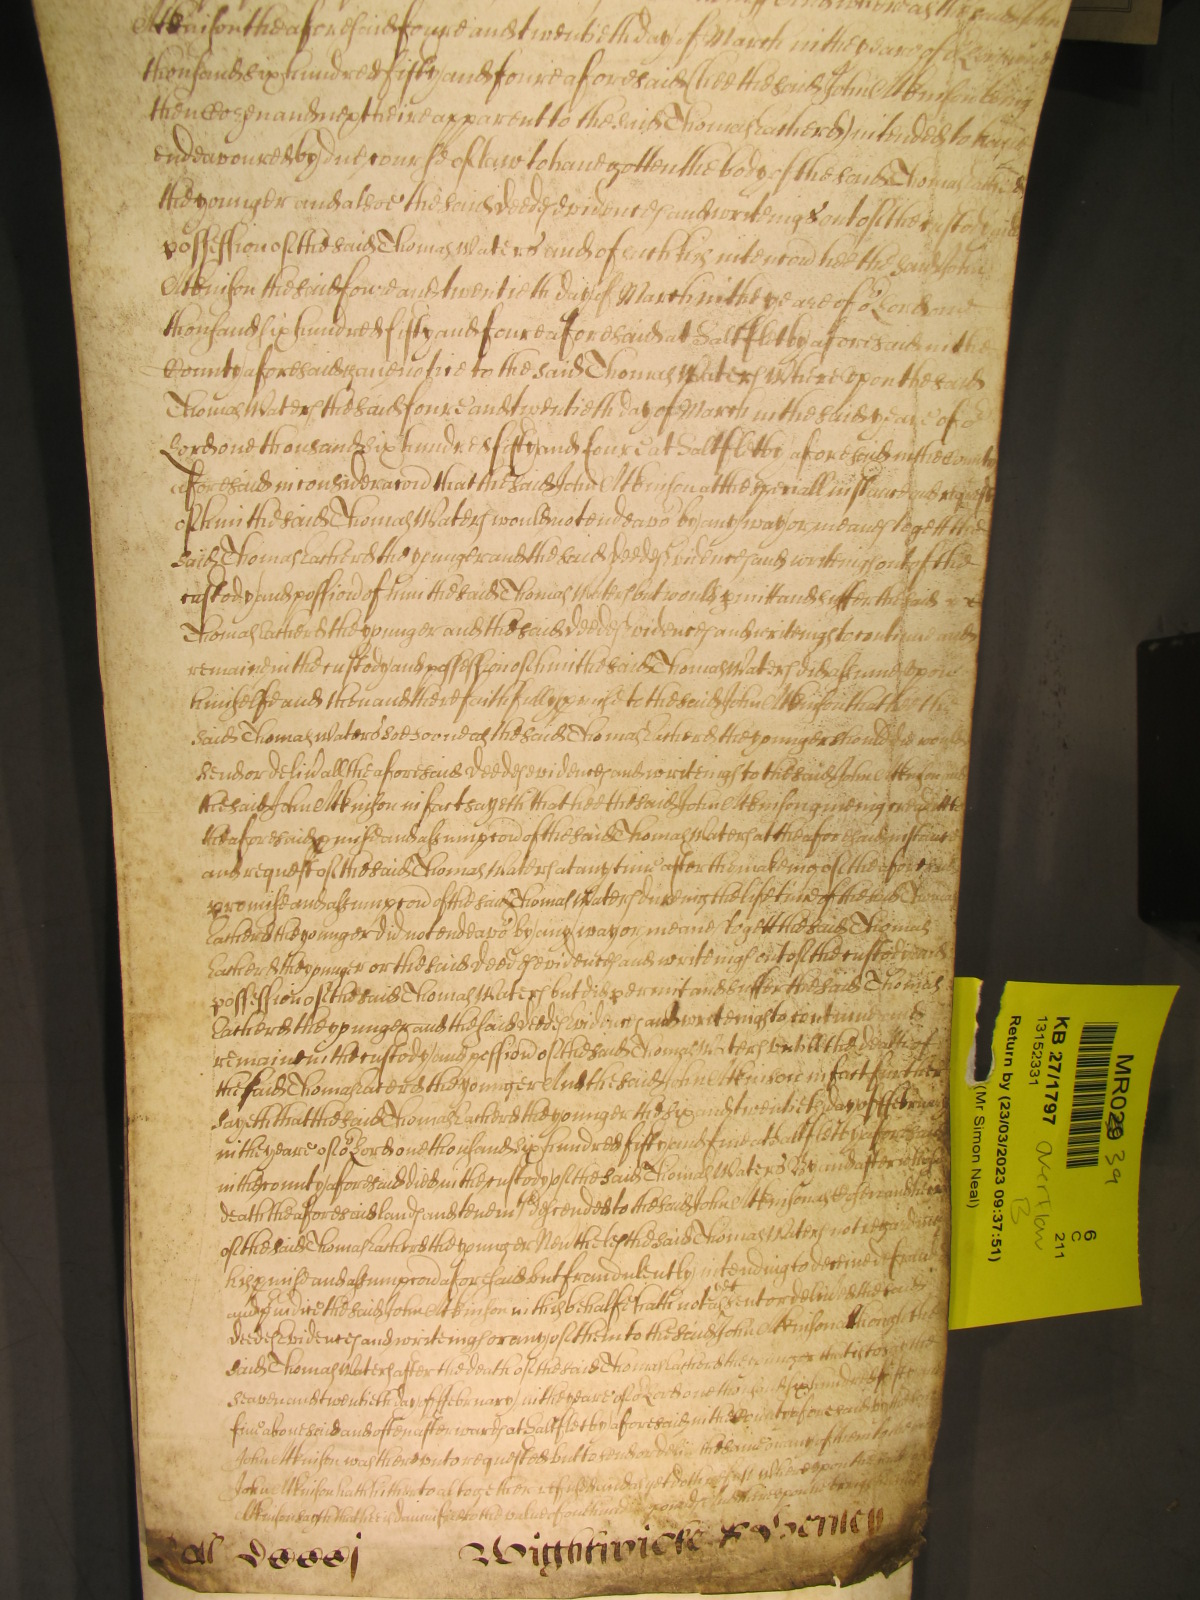 Atkinson the aforesaid foure and twentieth day of March in the yeare of or Lord one
thousand six hundred fifty and foure aforesaid hee the said John Atkinson being
then Cosen and next heire apparent to the said Thomas Latherd intended to have
endeavoured by due course of law to have gotten the body of the said Thomas Latherd
the younger and alsoe the said deedes evidences and writeings out of the custody and
possession of the said Thomas Waters and of such his intencon hee the said John
Atkinson the said foure and twentieth day of March in the yeare of or Lord one
thousand six hundred fifty and foure aforesaid at Saltfletby aforesaid in the
County aforesaid gave notice to the said Thomas Waters Whereupon the said
Thomas Waters the said foure and twentieth day of March in the said yeare of or
Lord one thousand six hundred fifty and foure at Saltfletby aforesaid in the County
aforesaid in consideracon that the said John Atkinson att the speciall instance and request
of him the said Thomas Waters would not endeavor by any way or meanes to gett the
said Thomas Latherd the younger and the said deedes evidences and writeings out of the
custody and possion of him the said Thomas Waters but would pmitt and suffer the said
Thomas Latherd the younger and the said deedes evidences and writeings to continue and
remaine in the custody and possession of him the said Thomas Waters did assume upon
himselfe and then and there faithfully pmise to the said John Atkinson that hee the
said Thomas Waters soe soone as the said Thomas Latherd the younger should dye would
send or deliv all the aforesaid deedes evidences and writeings to the said John Atkinson And
the said John Atkinson in fact sayeth that hee the said John Atkinson giveing creditt to
the aforesaid pmise and assumpcon of the said Thomas Waters at the aforesaid instance
and request of the said Thomas Waters at any time after the makeing of the aforesaid
promise and assumpcon of the said Thomas Waters dureing the life time of the said Thomas
Latherd the younger did not endeavor by any way or meanes to gett the said Thomas
Latherd the younger or the said deedes evidences and writeings out of the custody and
possession of the said Thomas Waters but did permit and suffer the said Thomas
Latherd the younger and the said deedes evidences and writeings to continue and
remaine in the custody and possion of the said Thomas Waters untill the death of
the said Thomas Latherd the younger And the said John Atkinson in fact further
sayeth that the said Thomas Latherd the younger the six and twentieth day of February
in the yeare of or Lord one thousand six hundred fifty and five at Saltfletby aforesaid
in the county aforesaid died in the custody of the said Thomas Waters By and after whose
death the aforesaid lands and tenemts descended to the said John Atkinson as Cosen and heire
of the said Thomas Latherd the younger Nevtheles the said Thomas Waters not regarding
his pmise and assumpcon aforesaid but fraudulently intending to deceive defraud
and piudice the said John Atkinson in this behalfe hath not as yet sent or delived the said
deedes evidences and writeings or any of them to the said John Atkinson Although the
said Thomas Waters after the death of the said Thomas Latherd the younger that is to say the
seaven and twentieth day of February in the yeare of or Lord one thousand six hundred fifty and
five abovesaid and often afterwards at Saltfletby aforesaid in the County aforesaid by the said
John Atkinson was thereunto requested but to send or deliv the same or any of them to the said
John Atkinson hath hitherto altogether refused and as yet doth refuse Whereupon the said
Atkinson sayth that hee is damnified to the value of pounds And thereupon he brings
Wightwicke &
MR029 39
6
C
211
KB 27/1797
13152331
Overflow
B
Return by (23/03/2023 09:37:51)
(Mr Simon Neal)